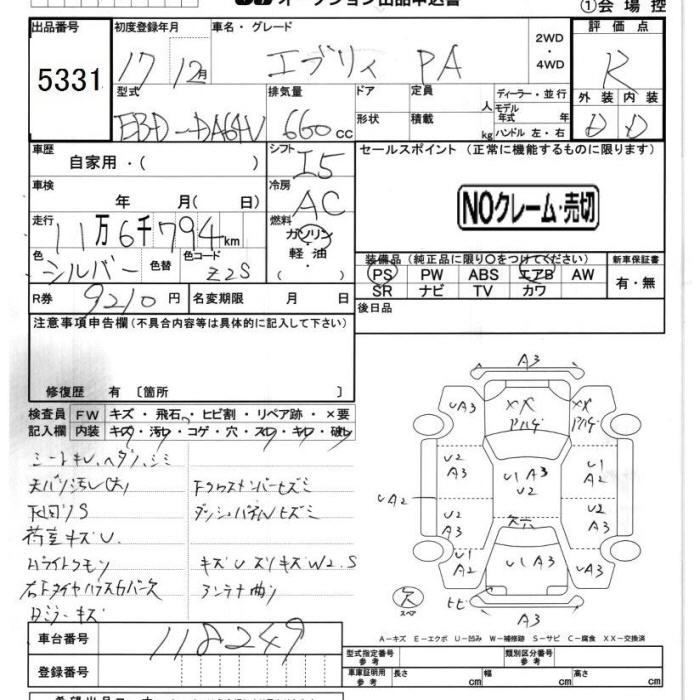 オークション出品申込書
①会場控
出品番号
5331
初度登録年月
17 12月
車名・グレード
エブリィ PA
2WD
・
4WD
評価点
R
外装 内装
D D
型式
EBD-DA64V
排気量
660cc
ドア
形状
定員
人
積載
kg
ディーラー・並行
モデル年式 年
ハンドル 左・右
車歴
自家用・( )
シフト
I5
セールスポイント (正常に機能するものに限ります)
NOクレーム・売切
車検
年 月( 日)
冷房
AC
走行
11万6千794km
燃料
ガソリン
軽油
色
シルバー
色替
色コード
Z2S
( )
装備品(純正品に限り○をつけてください)
PS PW ABS エアB AW
SR ナビ TV カワ
新車保証書
有・無
R券
9210円
名変期限 月 日
後日品
注意事項申告欄(不具合内容等は具体的に記入して下さい)
修復歴 有 〔箇所 〕
検査員
記入欄
FW キズ・飛石・ヒビ割・リペア跡・×要
内装 キズ・汚レ・コゲ・穴・スレ・キレ・破レ
シートキレ、ヘタリ、シミ
天バリ汚レ(大)
下回りS
荷室キズU
ライトクモン
キズUズリキズW2.S
アンテナ曲り
A3
UA3
XX
XX
U2
A3
U1 A3
U2
U1
A2
UA2
U2
A3
U2
A3
欠穴
U1
A2
U1A3
UA3
欠
スペア
ヒビ
A3
A-キズ E-エクボ U-凹み W-補修跡 S-サビ C-腐食 XX-交換済
車台番号
118249
登録番号
型式指定番号
参考
類別区分番号
参考
車庫証明用
参考
長さ cm
幅 cm
高さ cm